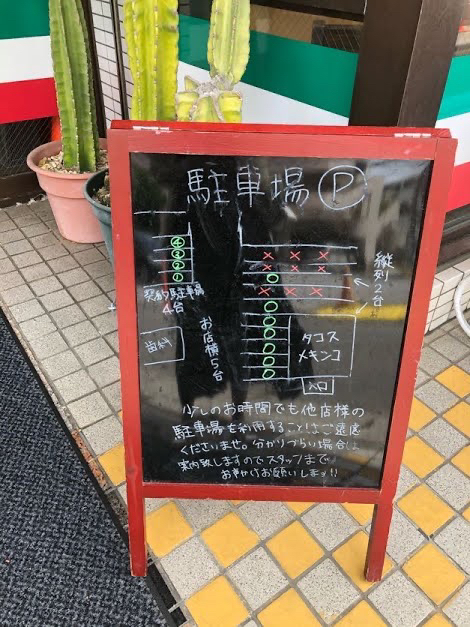 駐車場 Ⓟ
④
③
②
①
契約駐車場
4台
歯科
お店横5台
縦列2台
タコス
メキシコ
入口
少しのお時間でも他店様の
駐車場を利用することはご遠慮
くださいませ。分かりづらい場合は
案内致しますのでスタッフまで
お声かけお願いします!!